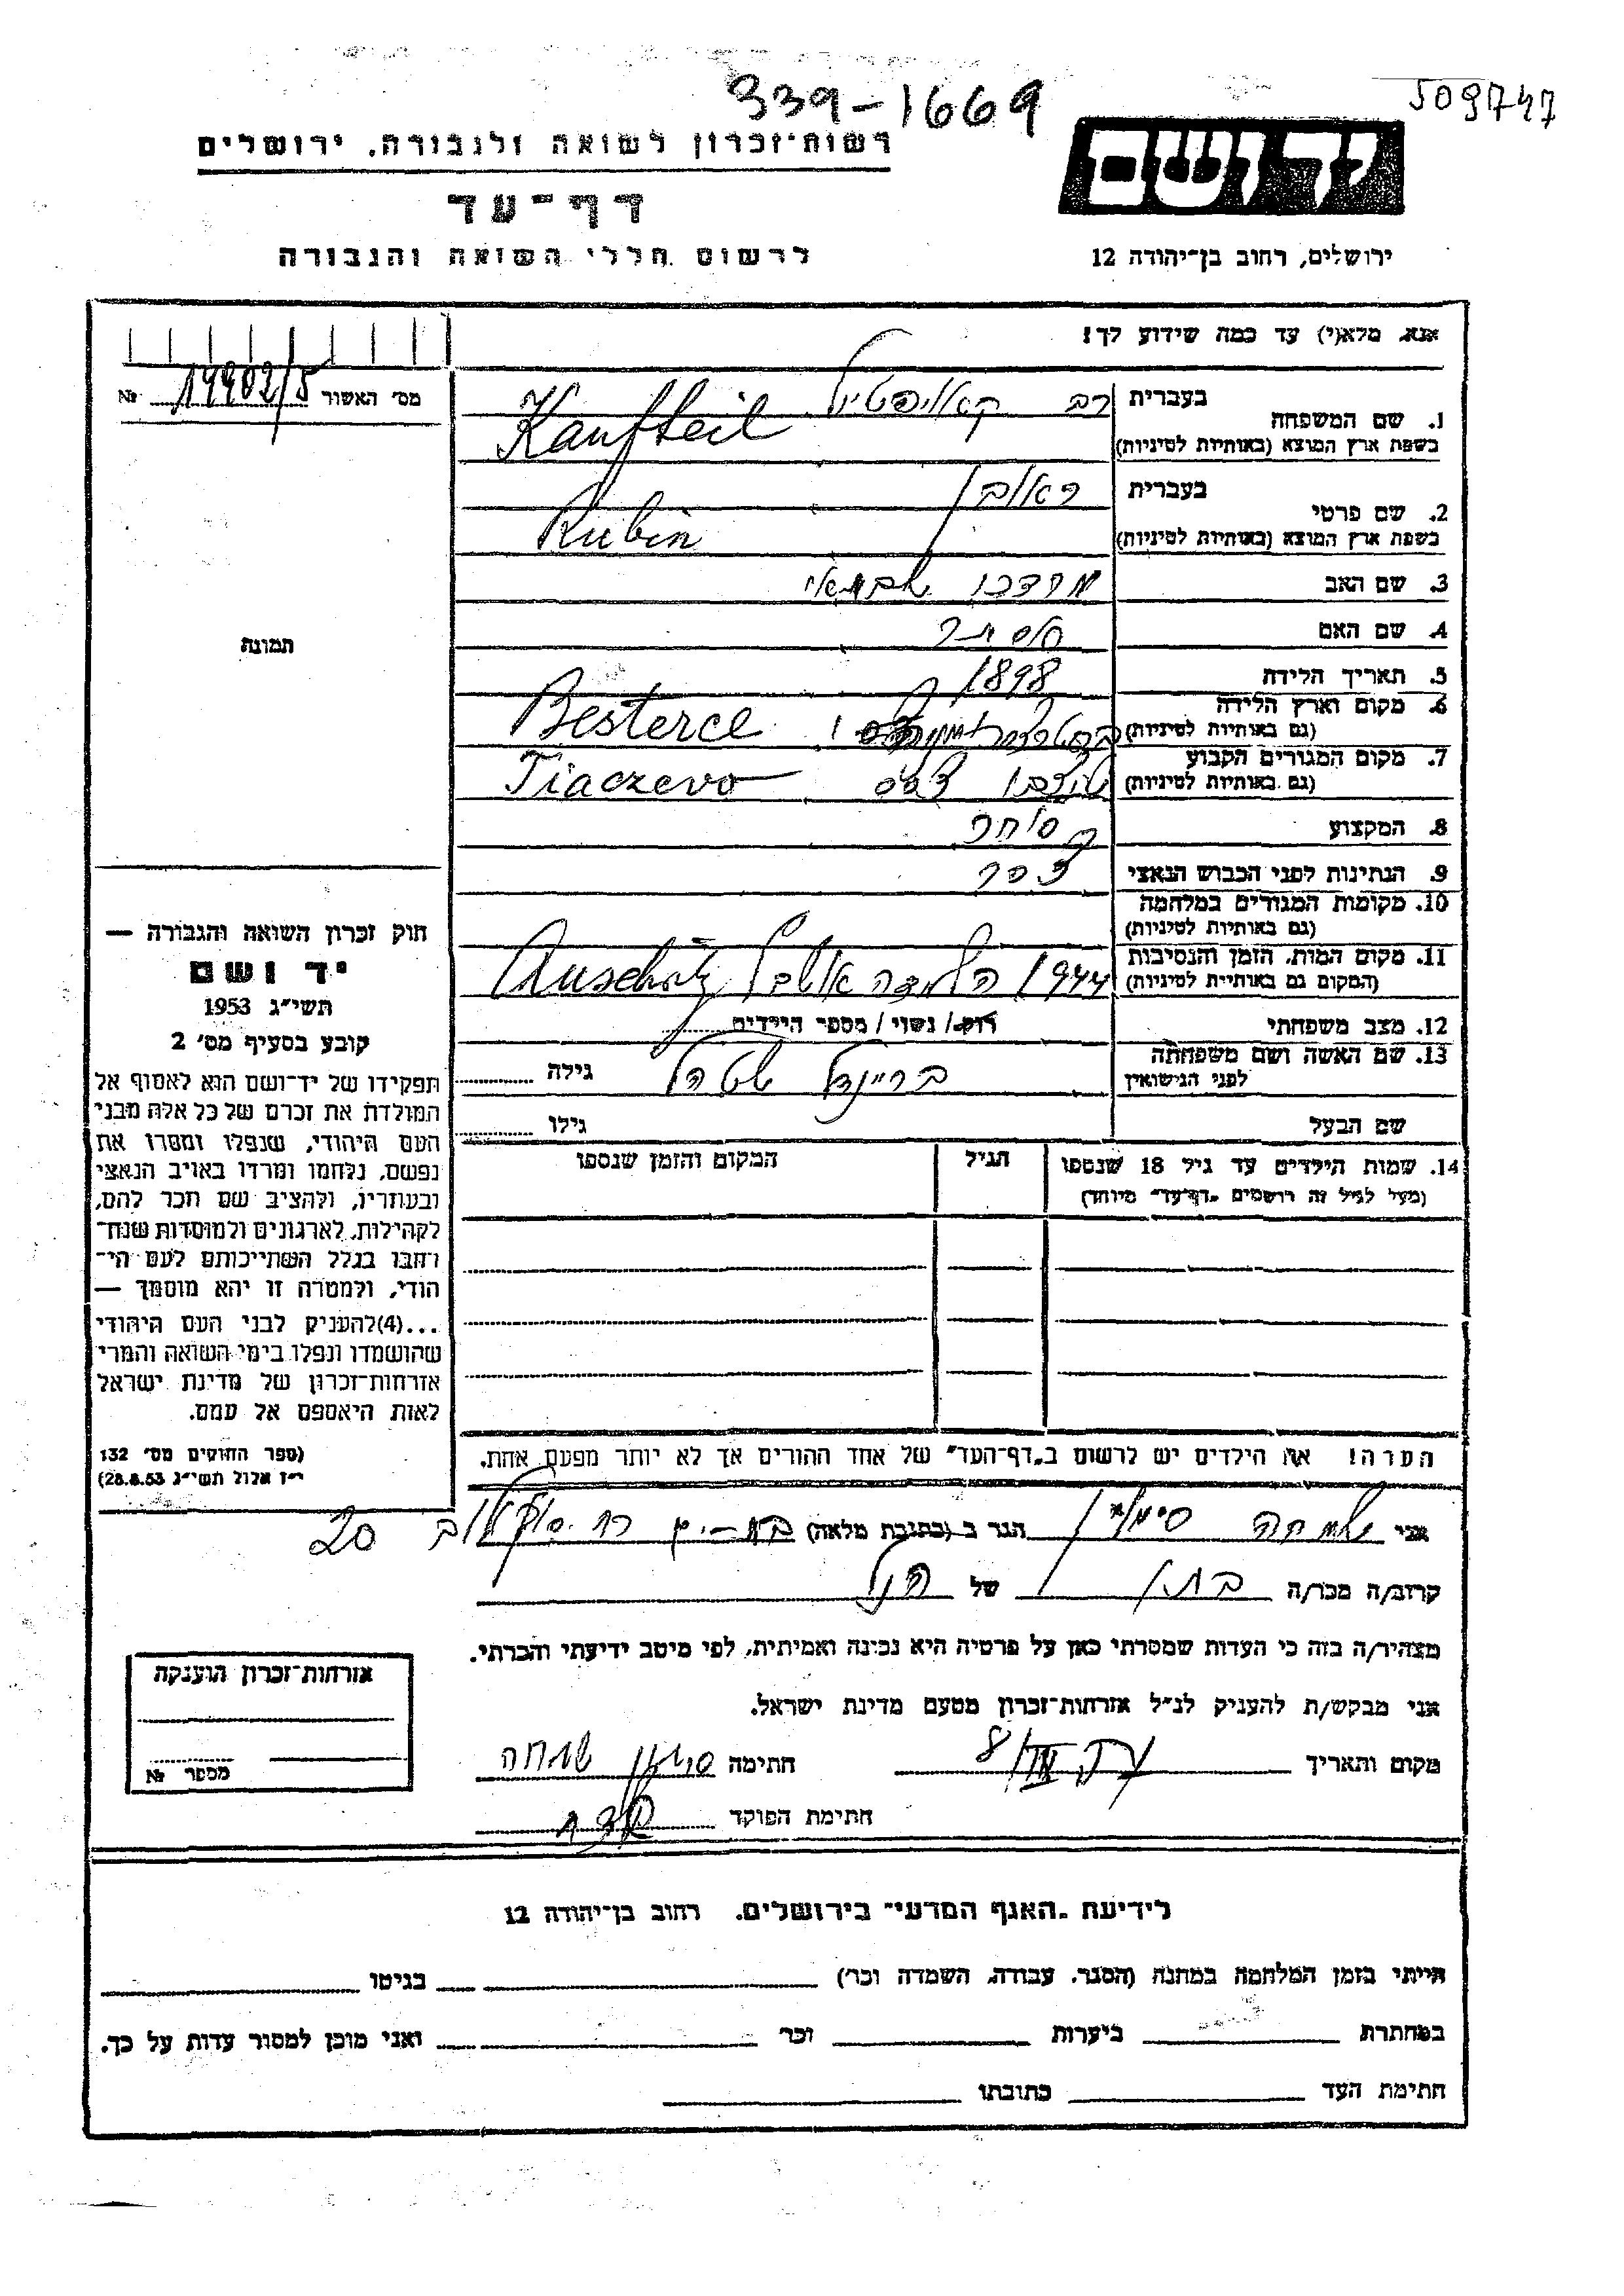 339-1669
509747
רשות-זכרון לשואה ולגבורה, ירושלים
יד ושם
דף-עד
לרשום חללי השואה והגבורה
ירושלים, רחוב בן-יהודה 12
אנא, מלא(י) עד כמה שידוע לך!
מס' האשור 19902/5 №
תמונה
1. שם המשפחה
בעברית
בשפת ארץ המוצא (באותיות לטיניות) Kaufteil
2. שם פרטי
בעברית ראובן
בשפת ארץ המוצא (באותיות לטיניות) Rubin
3. שם האב מרדכי
4. שם האם
5. תאריך הלידה 1898
6. מקום וארץ הלידה
(גם באותיות לטיניות) Besterce
7. מקום המגורים הקבוע
(גם באותיות לטיניות) Tiaczevo
8. המקצוע סוחר
9. הנתינות לפני הכבוש הנאצי
10. מקומות המגורים במלחמה
(גם באותיות לטיניות)
11. מקום המות, הזמן והנסיבות
(המקום גם באותיות לטיניות) 1944 Auschwitz
12. מצב משפחתי רווק/ נשוי/ מספר הילדים
13. שם האשה ושם משפחתה
לפני הנישואין בריינדל גילה
שם הבעל גילו
14. שמות הילדים עד גיל 18 שנספו הגיל המקום והזמן שנספו
(מעל לגיל זה רושמים "דף-עד" מיוחד)
חוק זכרון השואה והגבורה —
יד ושם
תשי"ג 1953
קובע בסעיף מס' 2
תפקידו של יד-ושם הוא לאסוף אל
המולדת את זכרם של כל אלה מבני
העם היהודי, שנפלו ומסרו את
נפשם, נלחמו ומרדו באויב הנאצי
ובעוזריו, ולהציב שם וזכר להם,
לקהילות, לארגונים ולמוסדות שנח-
רבו בגלל השתייכותם לעם הי-
הודי, ולמטרה זו יהא מוסמך —
...(4) להעניק לבני העם היהודי
שהושמדו ונפלו בימי השואה והמרי
אזרחות-זכרון של מדינת ישראל
לאות היאספם אל עמם.
(ספר החוקים מס' 132
י"ז אלול תשי"ג 28.8.53)
הערה! את הילדים יש לרשום ב"דף-העד" של אחד ההורים אך לא יותר מפעם אחת.
אני שמחה סימון הגר ב (כתובת מלאה) בת-ים רח סוקולוב 20
קרוב/ה מכר/ה בתו של הנ"ל
מצהיר/ה בזה כי העדות שמסרתי כאן על פרטיה היא נכונה ואמיתית, לפי מיטב ידיעתי והכרתי.
אני מבקש/ת להעניק לנ"ל אזרחות-זכרון מטעם מדינת ישראל.
מקום ותאריך חתימה סימון שמחה
חתימת הפוקד
אזרחות-זכרון הוענקה
מספר №
לידיעת "האגף המדעי" בירושלים, רחוב בן-יהודה 12
הייתי בזמן המלחמה במחנה (הסגר, עבודה, השמדה וכו') בגיטו
במחתרת ביערות וכו' ואני מוכן למסור עדות על כך.
חתימת העד כתובתו